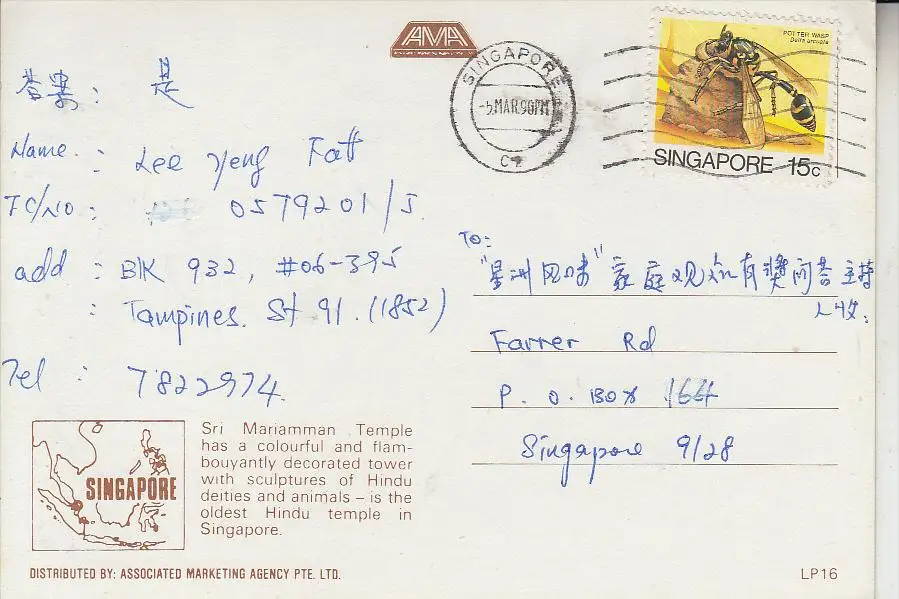 AMA
SINGAPORE
-5 MAR 90 PM
POTTER WASP
Delta arcuata
SINGAPORE 15c
答案: 是
Name : Lee Yeng Fatt
IC/NO : 0579201/J.
add : BlK 932, #06-395
: Tampines. St 91. (1852)
Tel : 7822974.
To:
"星洲风味" 家庭观众有奖问答主持
人收:
Farrer Rd
P. O. Box 164
Singapore 9128
SINGAPORE
Sri Mariamman Temple
has a colourful and flam-
bouyantly decorated tower
with sculptures of Hindu
deities and animals – is the
oldest Hindu temple in
Singapore.
DISTRIBUTED BY: ASSOCIATED MARKETING AGENCY PTE. LTD.
LP16